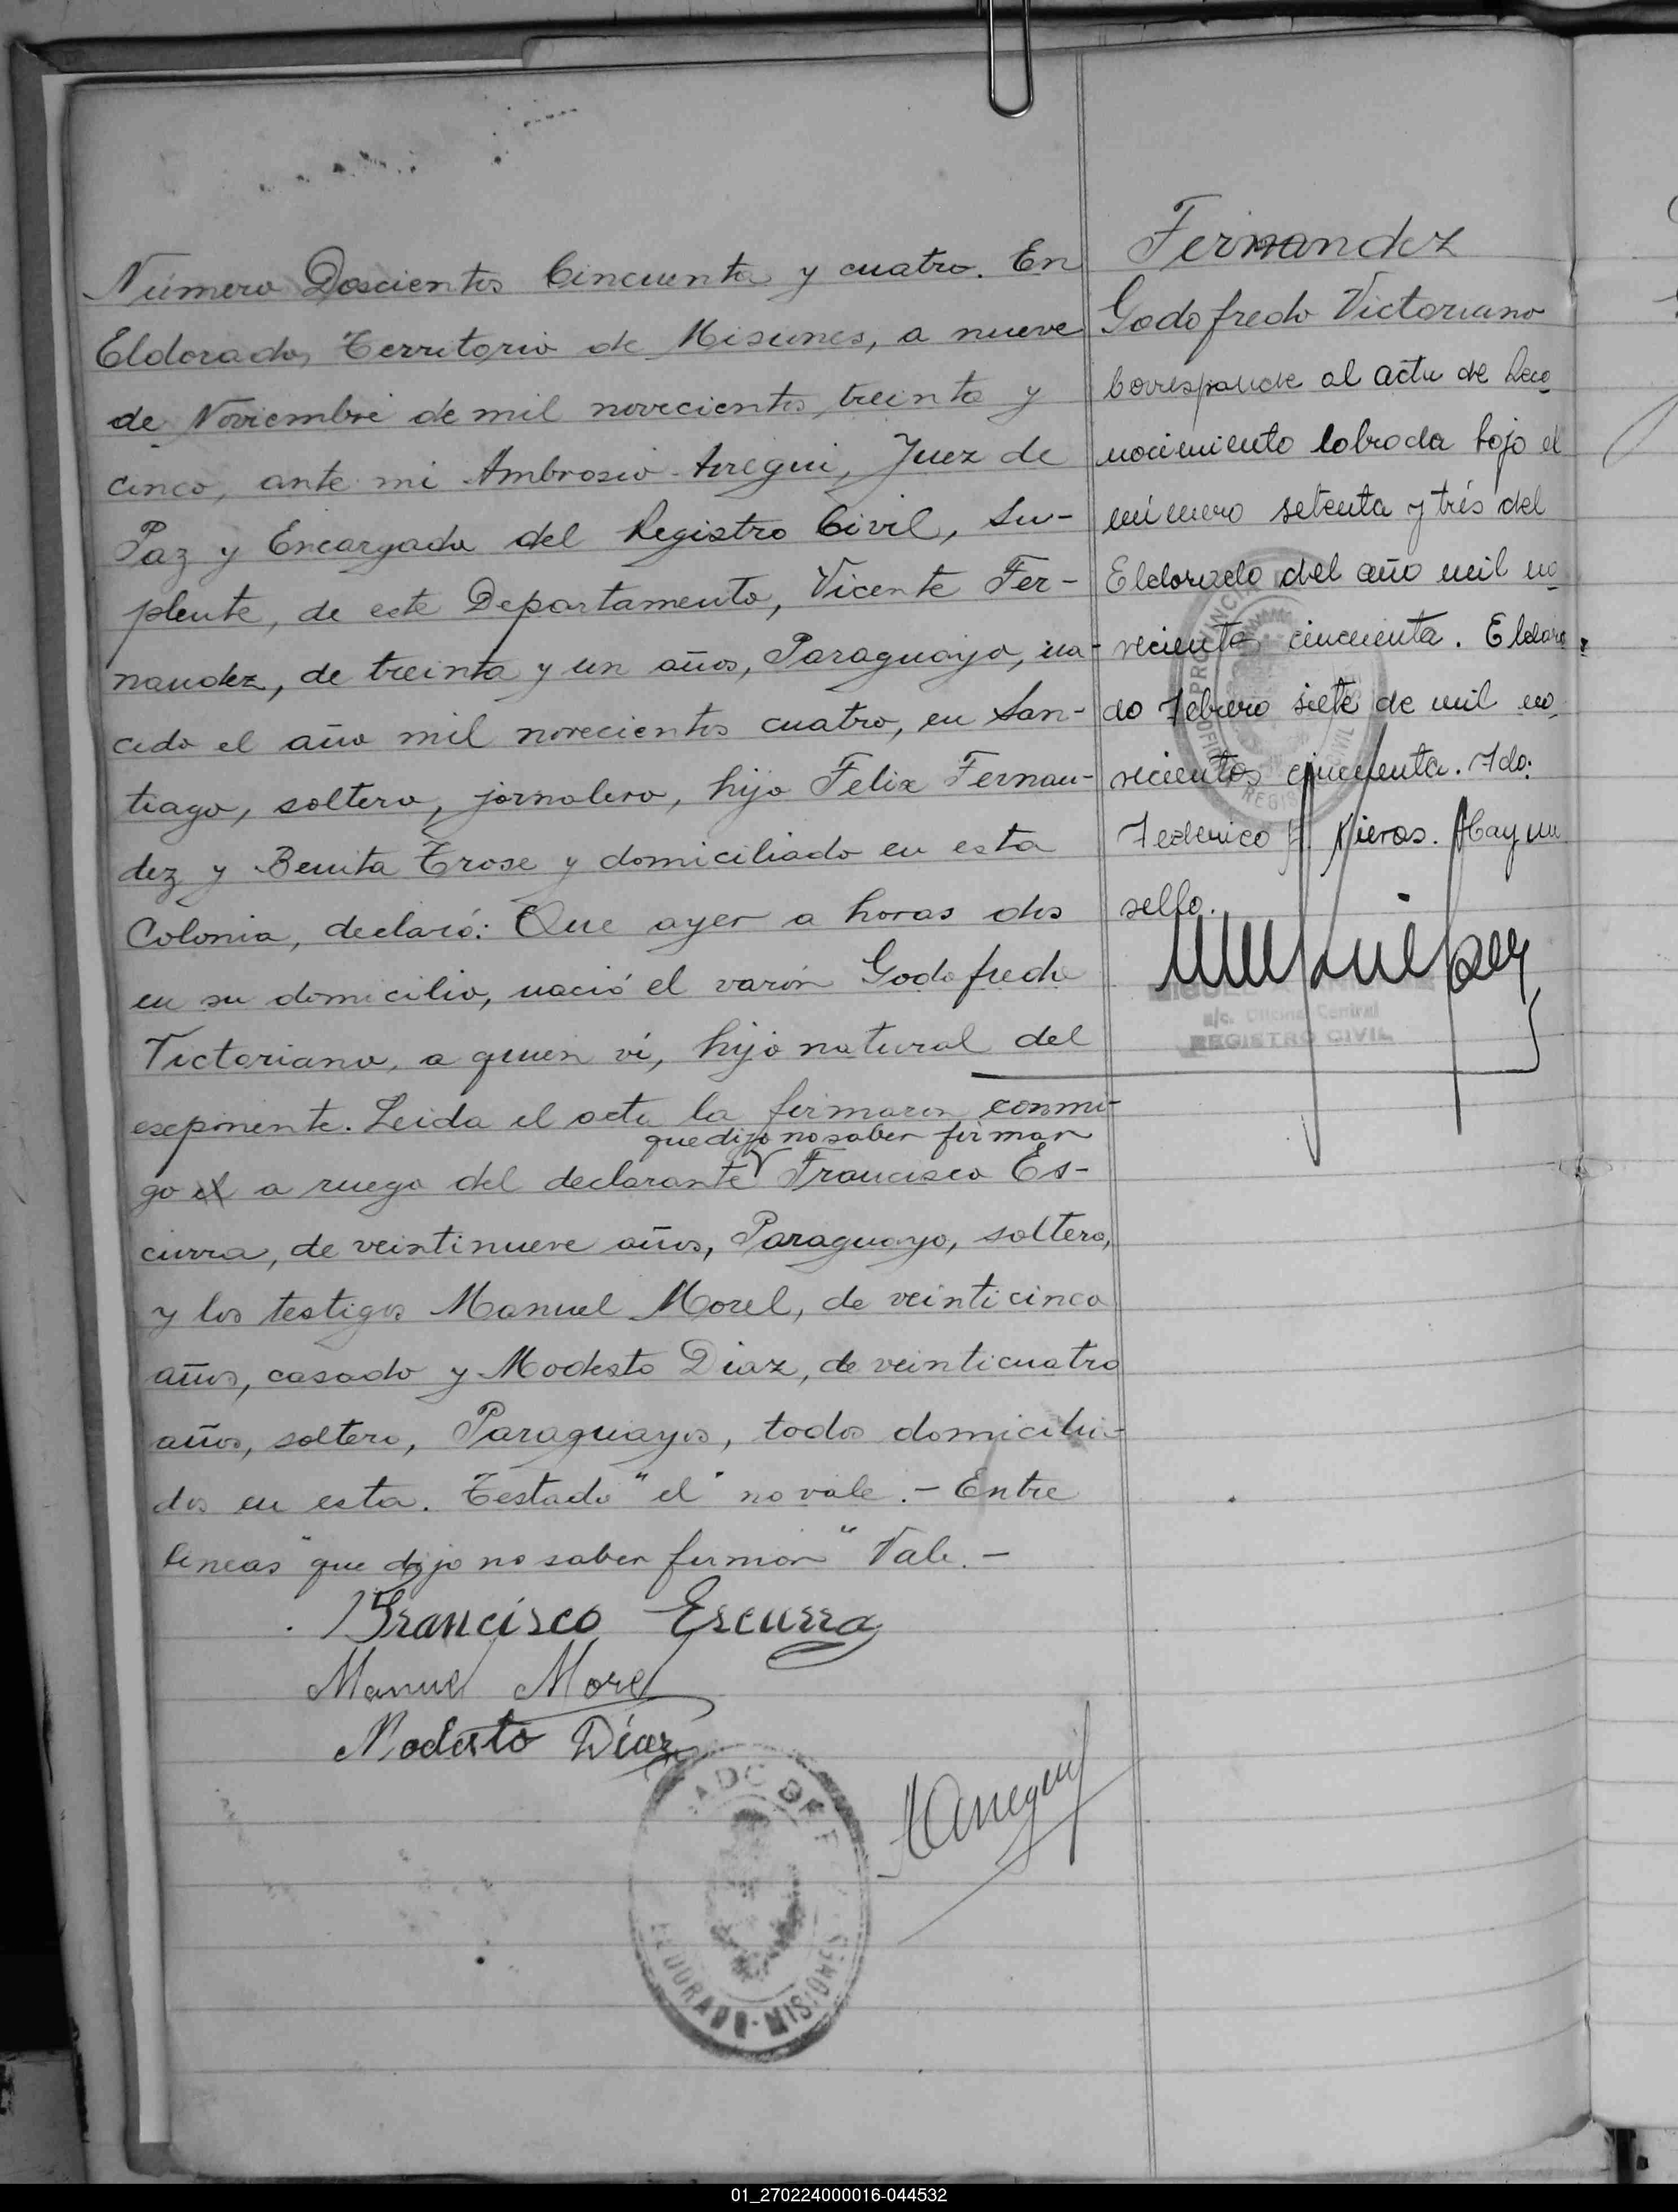 Número Doscientos Cincuenta y cuatro. En
Eldorado, Territorio de Misiones, a nueve
de Noviembre de mil novecientos treinta y
cinco, ante mi Ambrosio Arregui, Juez de
Paz y Encargado del Registro Civil, Su-
plente, de este Departamento, Vicente Fer-
nandez, de treinta y un años, Paraguayo, na-
cido el año mil novecientos cuatro, en San-
tiago, soltero, jornalero, hijo Felix Fernan-
dez y Benita Trose y domiciliado en esta
Colonia, declaró: Que ayer a horas dos
en su domicilio, nació el varón Godofredo
Victoriano, a quien ví, hijo natural del
exponente. Leida el acta la firmaron conmi-
que dijo no saber firmar
go el a ruego del declarante Francisco Es-
curra, de veintinueve años, Paraguayo, soltero,
y los testigos Manuel Morel, de veinticinco
años, casado y Modesto Diaz, de veinticuatro
años, soltero, Paraguayos, todos domicilia-
dos en esta. Testado "el" no vale.- Entre
lineas "que dijo no saber firmar" Vale.-
Francisco Escurra
Manuel Morel
Modesto Díaz
ADO DE
ELDORADO-MISIONES
Fernandez
Godofredo Victoriano
Corresponde al acta de Reco
nocimiento labrada bajo el
número setenta y trés del
Eldorado del año mil no
vecientos cincuenta. Eldora
do Febrero siete de mil no
vecientos cincuenta. Fdo:
Federico Nieras. Hay un
sello.
PROVINCIA
REGISTRO CIVIL
a/c. Oficina Central
REGISTRO CIVIL
01_270224000016-044532